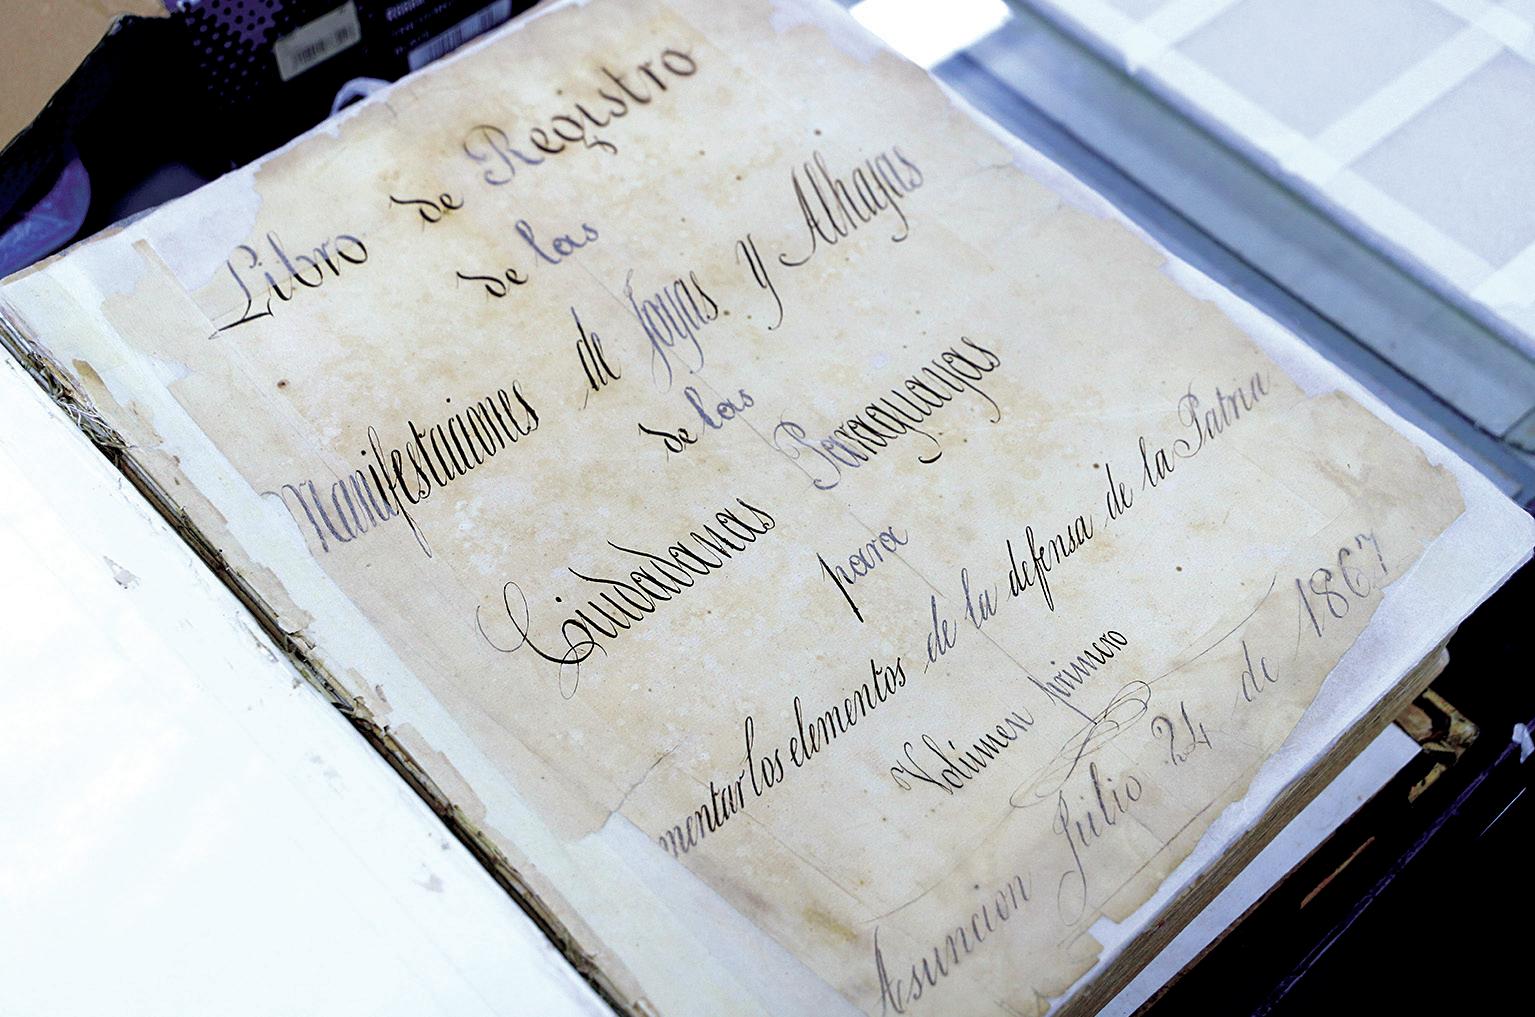 Libro de Registro
de las
Manifestaciones de Joyas y Alhayas
de las
Ciudadanas Paraguayas
para
mentar los elementos de la defensa de la Patria
Volúmen primero
Asuncion Julio 24 de 1867